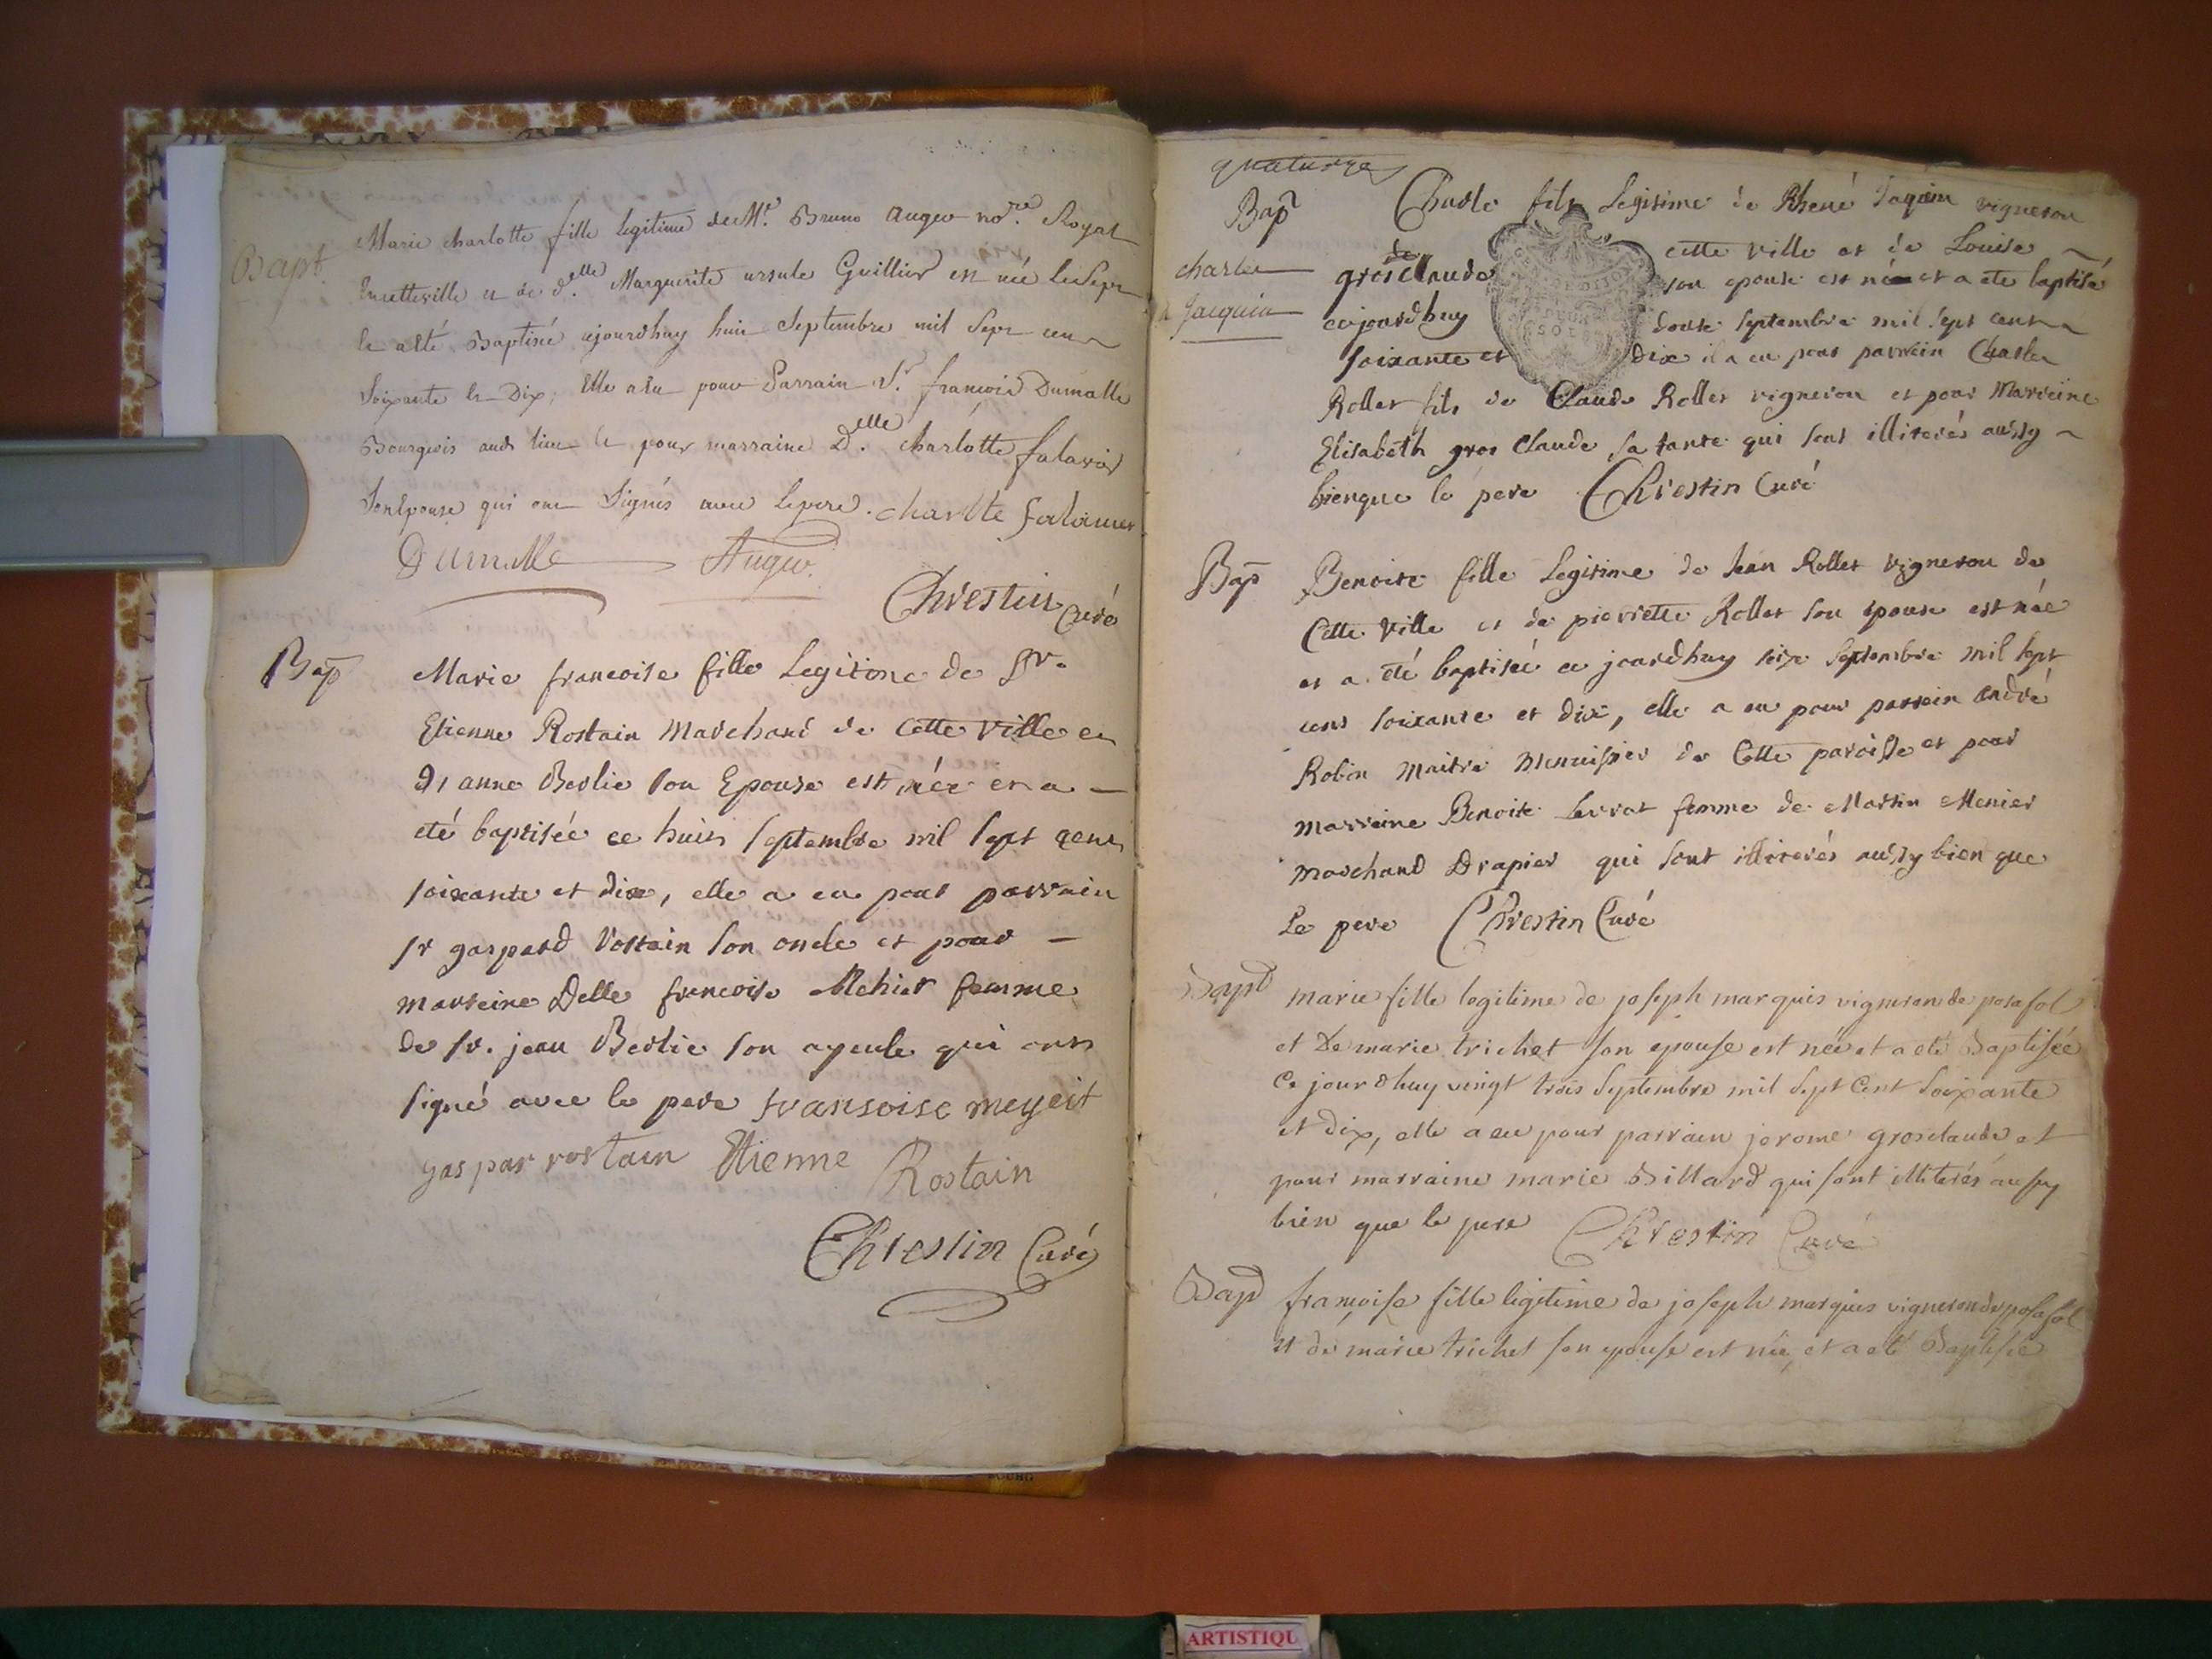 Bapt.
Marie charlotte fille legitime de Mr. Bruno auger nore. Royal
en cette ville et de delle. Marguerite ursule Guillier est née le sept
le a eté Baptisé ajourdhuy huit Septembre mil Sept cent
Soixante et Dix, Elle a eu pour Parrain Sr. françois Dumalle
Bourgeois aud. lieu et pour marraine Delle. charlotte
Son Epouse qui ont Signés avec le pere. charltte
Dumalle Auger
Chrestin Curé
Bap
Marie francoise fille Legitime de Sr.
Etienne Rostain Marchand de cette ville et
anne Berlie son Epouse est née et a
eté baptisée ce huit septembre mil sept cent
soixante et dix, elle a eu pour parrain
sr gaspard rostain son oncle et pour
marreine Delle francoise Mehier femme
de sr. jean Berlie son ayeule qui ont
signé avec le pere fransoise meyeit
gaspar rostain Etienne Rostain
Chrestin Curé
quatorze
Bap
charle
Jacquin
Charle fils Legitime de Rhené Jaquin vigneron
de cette ville et de Louise
grosclaude son epouse est né et a ete baptisé
cejourdhuy douze septembre mil sept cent
soixante et dix il a eu pour parrein Charle
Rollet fils de Claude Rollet vigneron et pour Marreine
Elisabeth gros Claude sa tante qui sont illiterés aussy
bienque le pere Chrestin Curé
Bap
Benoite fille Legitime de Jean Rollet vigneron de
Cette ville et de pierrette Rollet son epouse est née
et a été baptisée ce jourdhuy seize septembre mil sept
cent soixante et dix, elle a eu pour parrein andré
Robin maitre menuisier de Cette paroisse et pour
marreine Benoite Lerrat femme de Martin Menier
marchand Drapier qui sont illiterés aussy bien que
Le pere Chrestin Curé
Bapt
marie fille legitime de joseph marquis vigneron de posafol
et De marie trichet son epouse est née et a eté Baptisée
Ce jourdhuy vingt trois Septembre mil Sept Cent Soixante
et dix, elle a eu pour parrain jerome grosclaude et
pour marraine marie Billard qui sont illiterés aussy
bien que le pere Chrestin Curé
Bapt
françoise fille legitime de joseph marquis vigneron de posafol
et de marie trichet son epouse est née et a eté Baptisée
ARTISTIQU